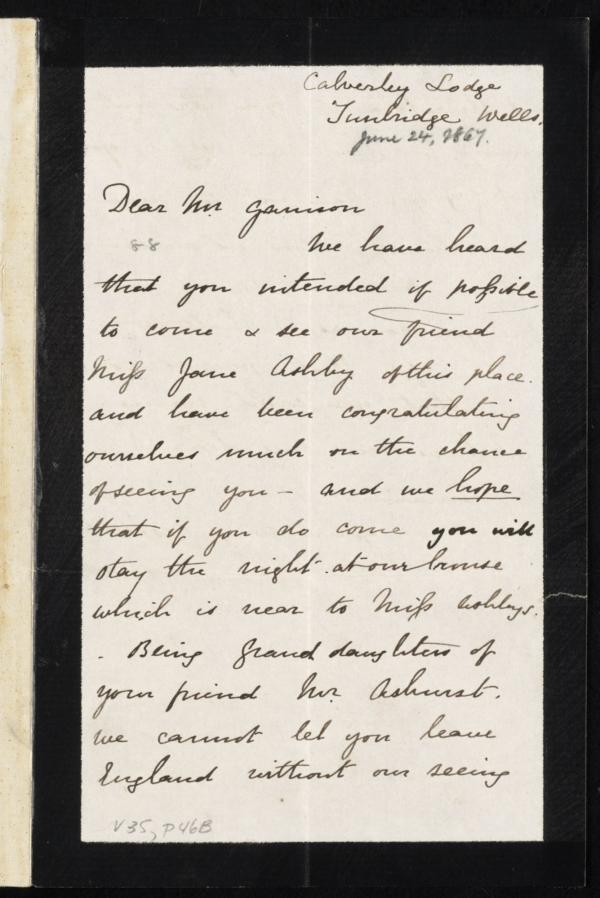 Calverley Lodge
Tunbridge Wells.
June 24, 1867.
Dear Mr. Garrison
88
We have heard
that you intended if possible
to come & see our friend
Miss Jane Ashby of this place.
and have been congratulating
ourselves much on the chance
of seeing you – and we hope
that if you do come you will
stay the night. at our house
which is near to Miss Ashbys.
. Being Grand daughters of
your friend Mr. Ashurst.
we cannot let you leave
England without our seeing
V 35, P 46B